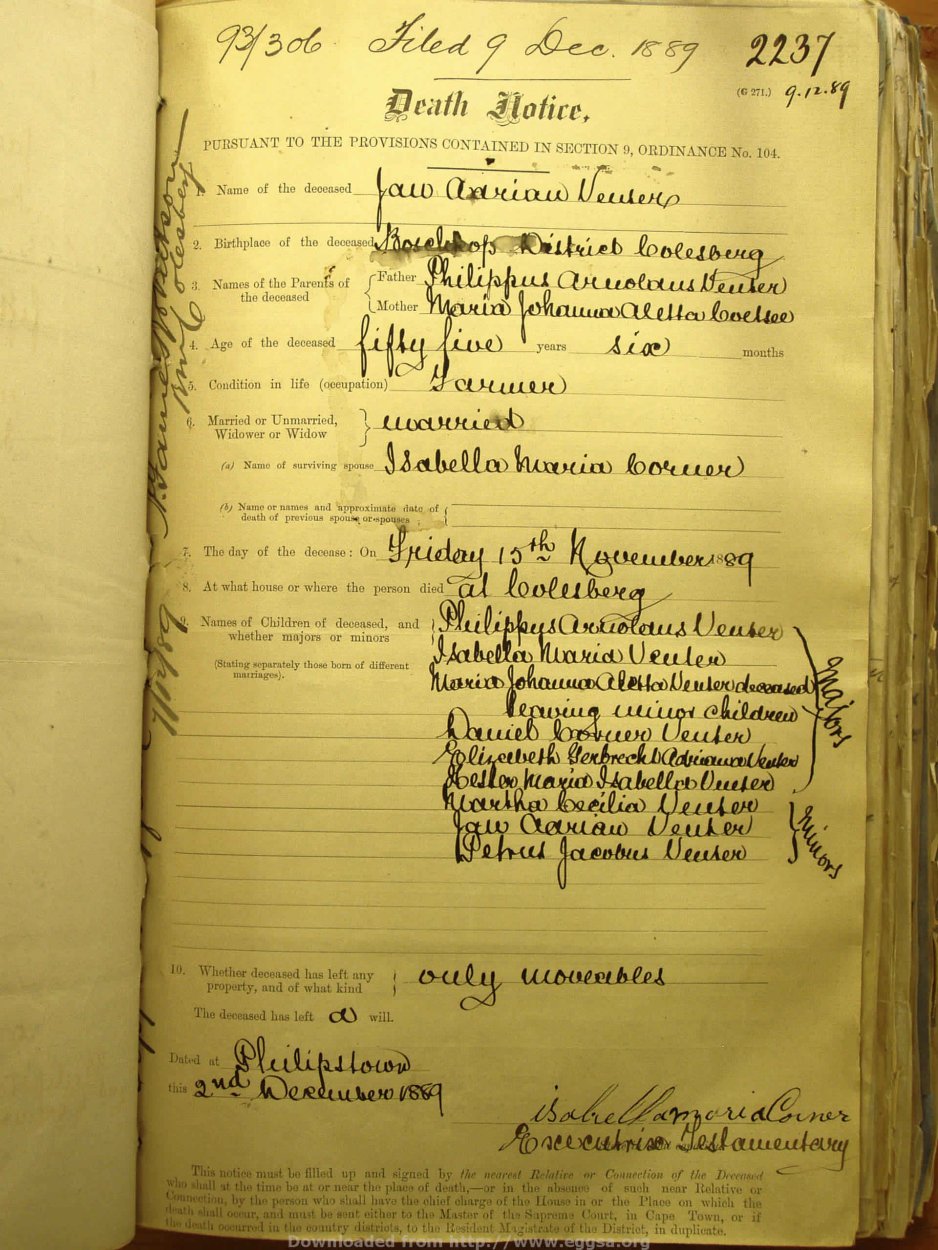 93/306 Filed 9 Dec. 1889 2237
(G 271.) 9.12.89
Death Notice,
PURSUANT TO THE PROVISIONS CONTAINED IN SECTION 9, ORDINANCE No. 104.
1. Name of the deceased Jan Adrian Venter
2. Birthplace of the deceased Boschkop District Colesberg
3. Names of the Parents of the deceased
Father Philippus Arnoldus Venter
Mother Maria Johanna Aletta Coetsee
4. Age of the deceased fifty five years six months
5. Condition in life (occupation) Farmer
6. Married or Unmarried, Widower or Widow } married
(a) Name of surviving spouse Isabella Maria Corner
(b) Name or names and approximate date of
death of previous spouse or spouses
7. The day of the decease: On Friday 15th November 1889
8. At what house or where the person died at Colesberg
9. Names of Children of deceased, and whether majors or minors
(Stating separately those born of different marriages).
Philippus Arnoldus Venter
Isabella Maria Venter
Maria Johanna Aletta Venter deceased
leaving minor children
Daniel Corner Venter
Elizabeth Gerbrecht Adriana Venter
Hester Maria Isabella Venter
Majors
Martha Cecilia Venter
Jan Adrian Venter
Petrus Jacobus Venter
Minors
10. Whether deceased has left any property, and of what kind } only moveables
The deceased has left a will.
Dated at Philipstown
this 2nd December 1889
isabella maria Corner
Executrix Testamentary
This notice must be filled up and signed by the nearest Relative or Connection of the Deceased
who shall at the time be at or near the place of death,—or in the absence of such near Relative or
Connection, by the person who shall have the chief charge of the House in or the Place on which the
death shall occur, and must be sent either to the Master of the Supreme Court, in Cape Town, or if
the death occurred in the country districts, to the Resident Magistrate of the District, in duplicate.
Colesberg
7/12/89
Downloaded from http://www.eggsa.org